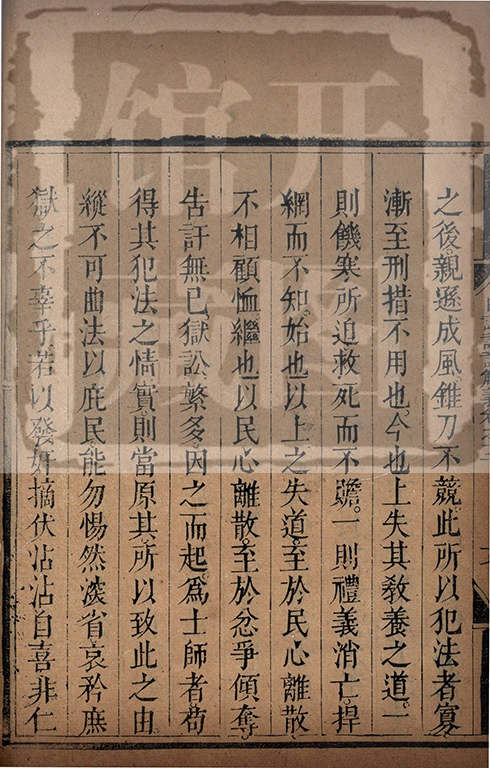 之後親遜成風錐刀不競此所以犯法者寡
漸至刑措不用也今也上失其敎養之道一
則饑寒所迫救死而不贍一則禮義消亡捍
網而不知始也以上之失道至於民心離散
不相顧恤繼也以民心離散至於忿爭傾奪
告訐無已獄訟繁多因之而起爲士師者茍
得其犯法之情實則當原其所以致此之由
縱不可曲法以庇民能勿惕然深省哀矜庶
獄之不辜乎若以發奸摘伏沾沾自喜非仁
开
馆
藏